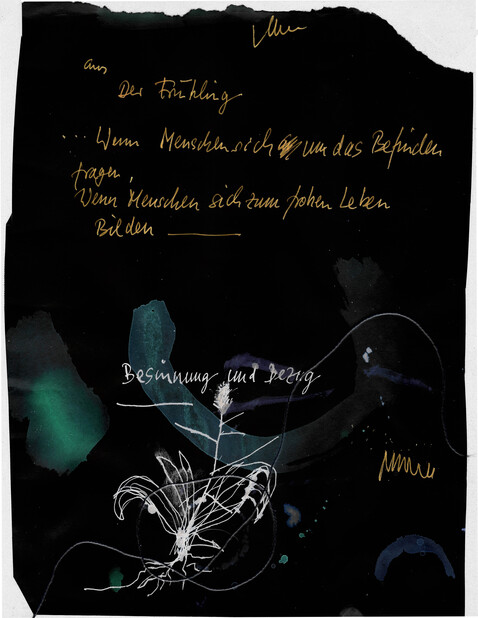 aus
Der Frühling
... Wenn Menschen sich um das Befinden
fragen,
Wenn Menschen sich zum frohen Leben
Bilden
Besinnung und Bezug